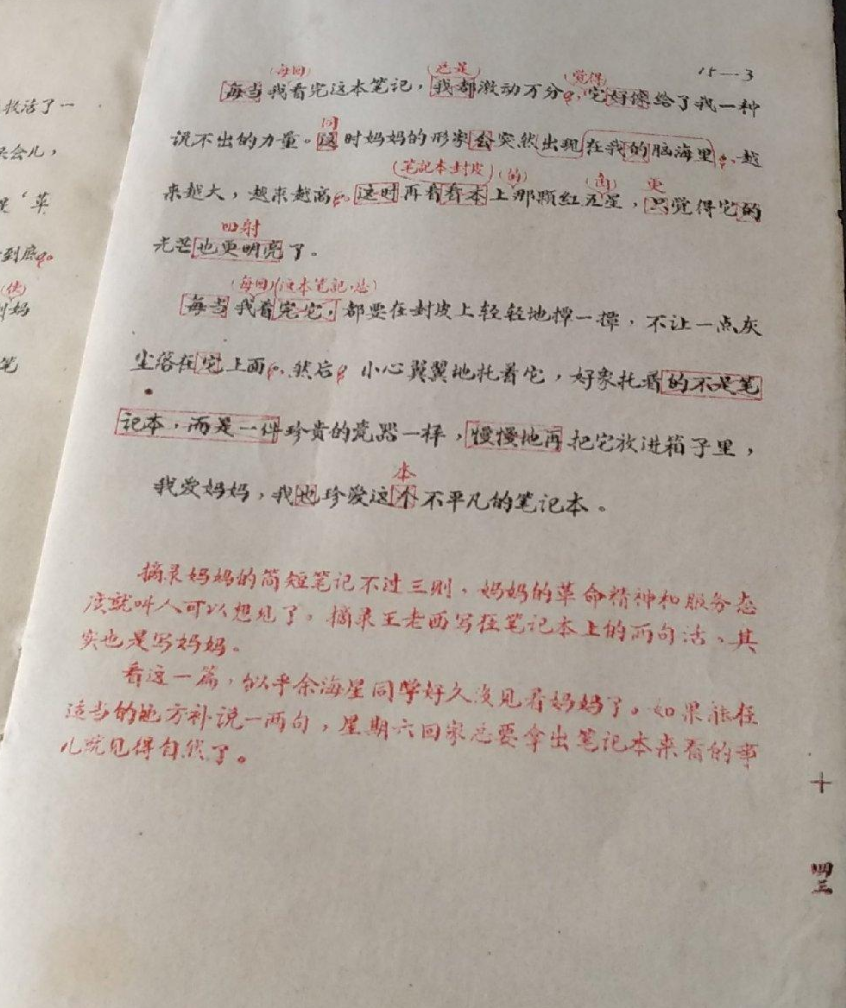 15—3
(每回) (总是) (觉得)
每当我看完这本笔记，我都激动万分，它好像给了我一种
同
说不出的力量。这时妈妈的形象会突然出现在我的脑海里，越
(笔記本封皮)(的) (面) 更
来越大，越来越高，这时再看看本上那颗红五星，只觉得它的
四射
光芒也更明亮了。
(每回)(这本笔記,总)
每当我看完它，都要在封皮上轻轻地撢一撢，不让一点灰
尘落在它上面，然后，小心翼翼地托着它，好象托着的不是笔
记本，而是一件珍贵的瓷器一样，慢慢地再把它放进箱子里，
本
我爱妈妈，我也珍爱这个不平凡的笔记本。
摘录妈妈的简短笔记不过三则，妈妈的革命精神和服务态
度就叫人可以想见了。摘录王老西写在笔记本上的两句话，其
实也是写妈妈。
看这一篇，似乎余海星同学好久没见着妈妈了。如果能在
适当的地方补说一两句，星期六回家总要拿出笔记本来看的事
儿就见得自然了。
十
四三
救活了一
会儿，
‘革
到底
(使)
妈
笔